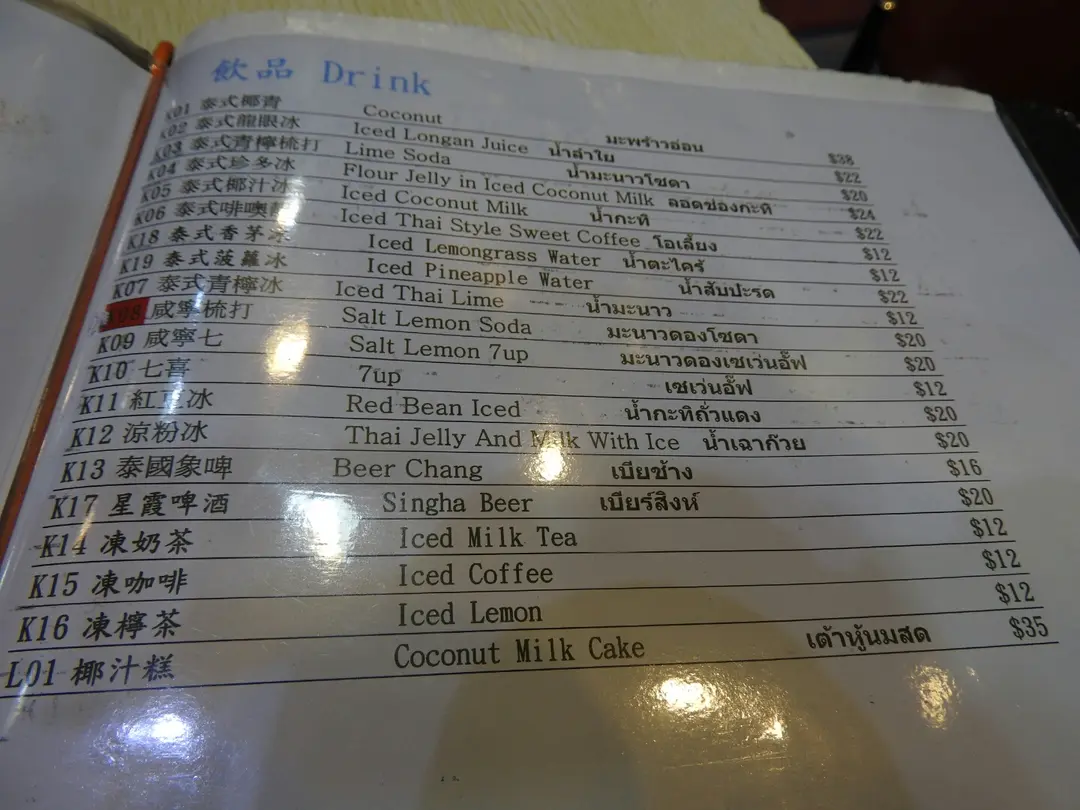 飲品 Drink
K01 泰式椰青 Coconut มะพร้าวอ่อน $38
K02 泰式龍眼冰 Iced Longan Juice น้ำลำใย $22
K03 泰式青檸梳打 Lime Soda น้ำมะนาวโซดา $20
K04 泰式珍多冰 Flour Jelly in Iced Coconut Milk ลอดช่องกะทิ $24
K05 泰式椰汁冰 Iced Coconut Milk น้ำกะทิ $22
K06 Iced Thai Style Sweet Coffee โอเลี้ยง $12
K18 泰式香茅冰 Iced Lemongrass Water น้ำตะไคร้ $12
K19 泰式菠蘿冰 Iced Pineapple Water น้ำสับปะรด $22
K07 泰式青檸冰 Iced Thai Lime น้ำมะนาว $12
K08 咸寧梳打 Salt Lemon Soda มะนาวดองโซดา $20
K09 咸寧七 Salt Lemon 7up มะนาวดองเซเว่นอั๊ฟ $20
K10 七喜 7up เซเว่นอั๊ฟ $12
K11 紅豆冰 Red Bean Iced น้ำกะทิถั่วแดง $20
K12 涼粉冰 Thai Jelly And Milk With Ice น้ำเฉาก๊วย $20
K13 泰國象啤 Beer Chang เบียช้าง $16
K17 星霞啤酒 Singha Beer เบียร์สิงห์ $20
K14 凍奶茶 Iced Milk Tea $12
K15 凍咖啡 Iced Coffee $12
K16 凍檸茶 Iced Lemon $12
L01 椰汁糕 Coconut Milk Cake เต้าหู้นมสด $35